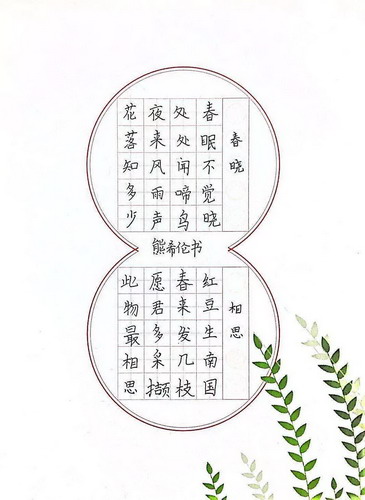 春晓
春眠不觉晓
处处闻啼鸟
夜来风雨声
花落知多少
熊希伦书
相思
红豆生南国
春来发几枝
愿君多采撷
此物最相思